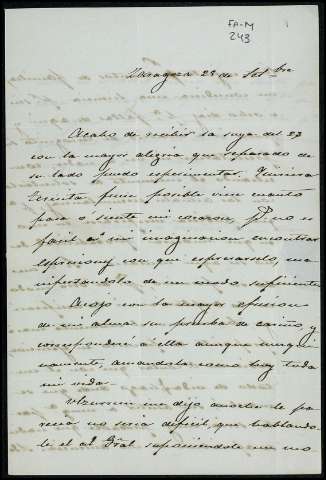 FA-M
243
Zaragoza 28 de Setbre
Acabo de recibir la suya del 27
con la mayor alegria que separado de
su lado puedo esperimentar. Quisiera
fuera posible viera cuanto
para V. siente mi corazon, no es
facil a mi imaginacion encontrar
espresiones con que espresarselo, ma
nifestandolo de un modo suficiente
Acojo con la mayor efusion
de mi alma su prueba de cariño, y
corresponderé a ella aunque
amandola como hoy toda
mi vida.
me dijo anoche le pa
recia no seria dificil que hablando
le el al Gral suplicandole un mo